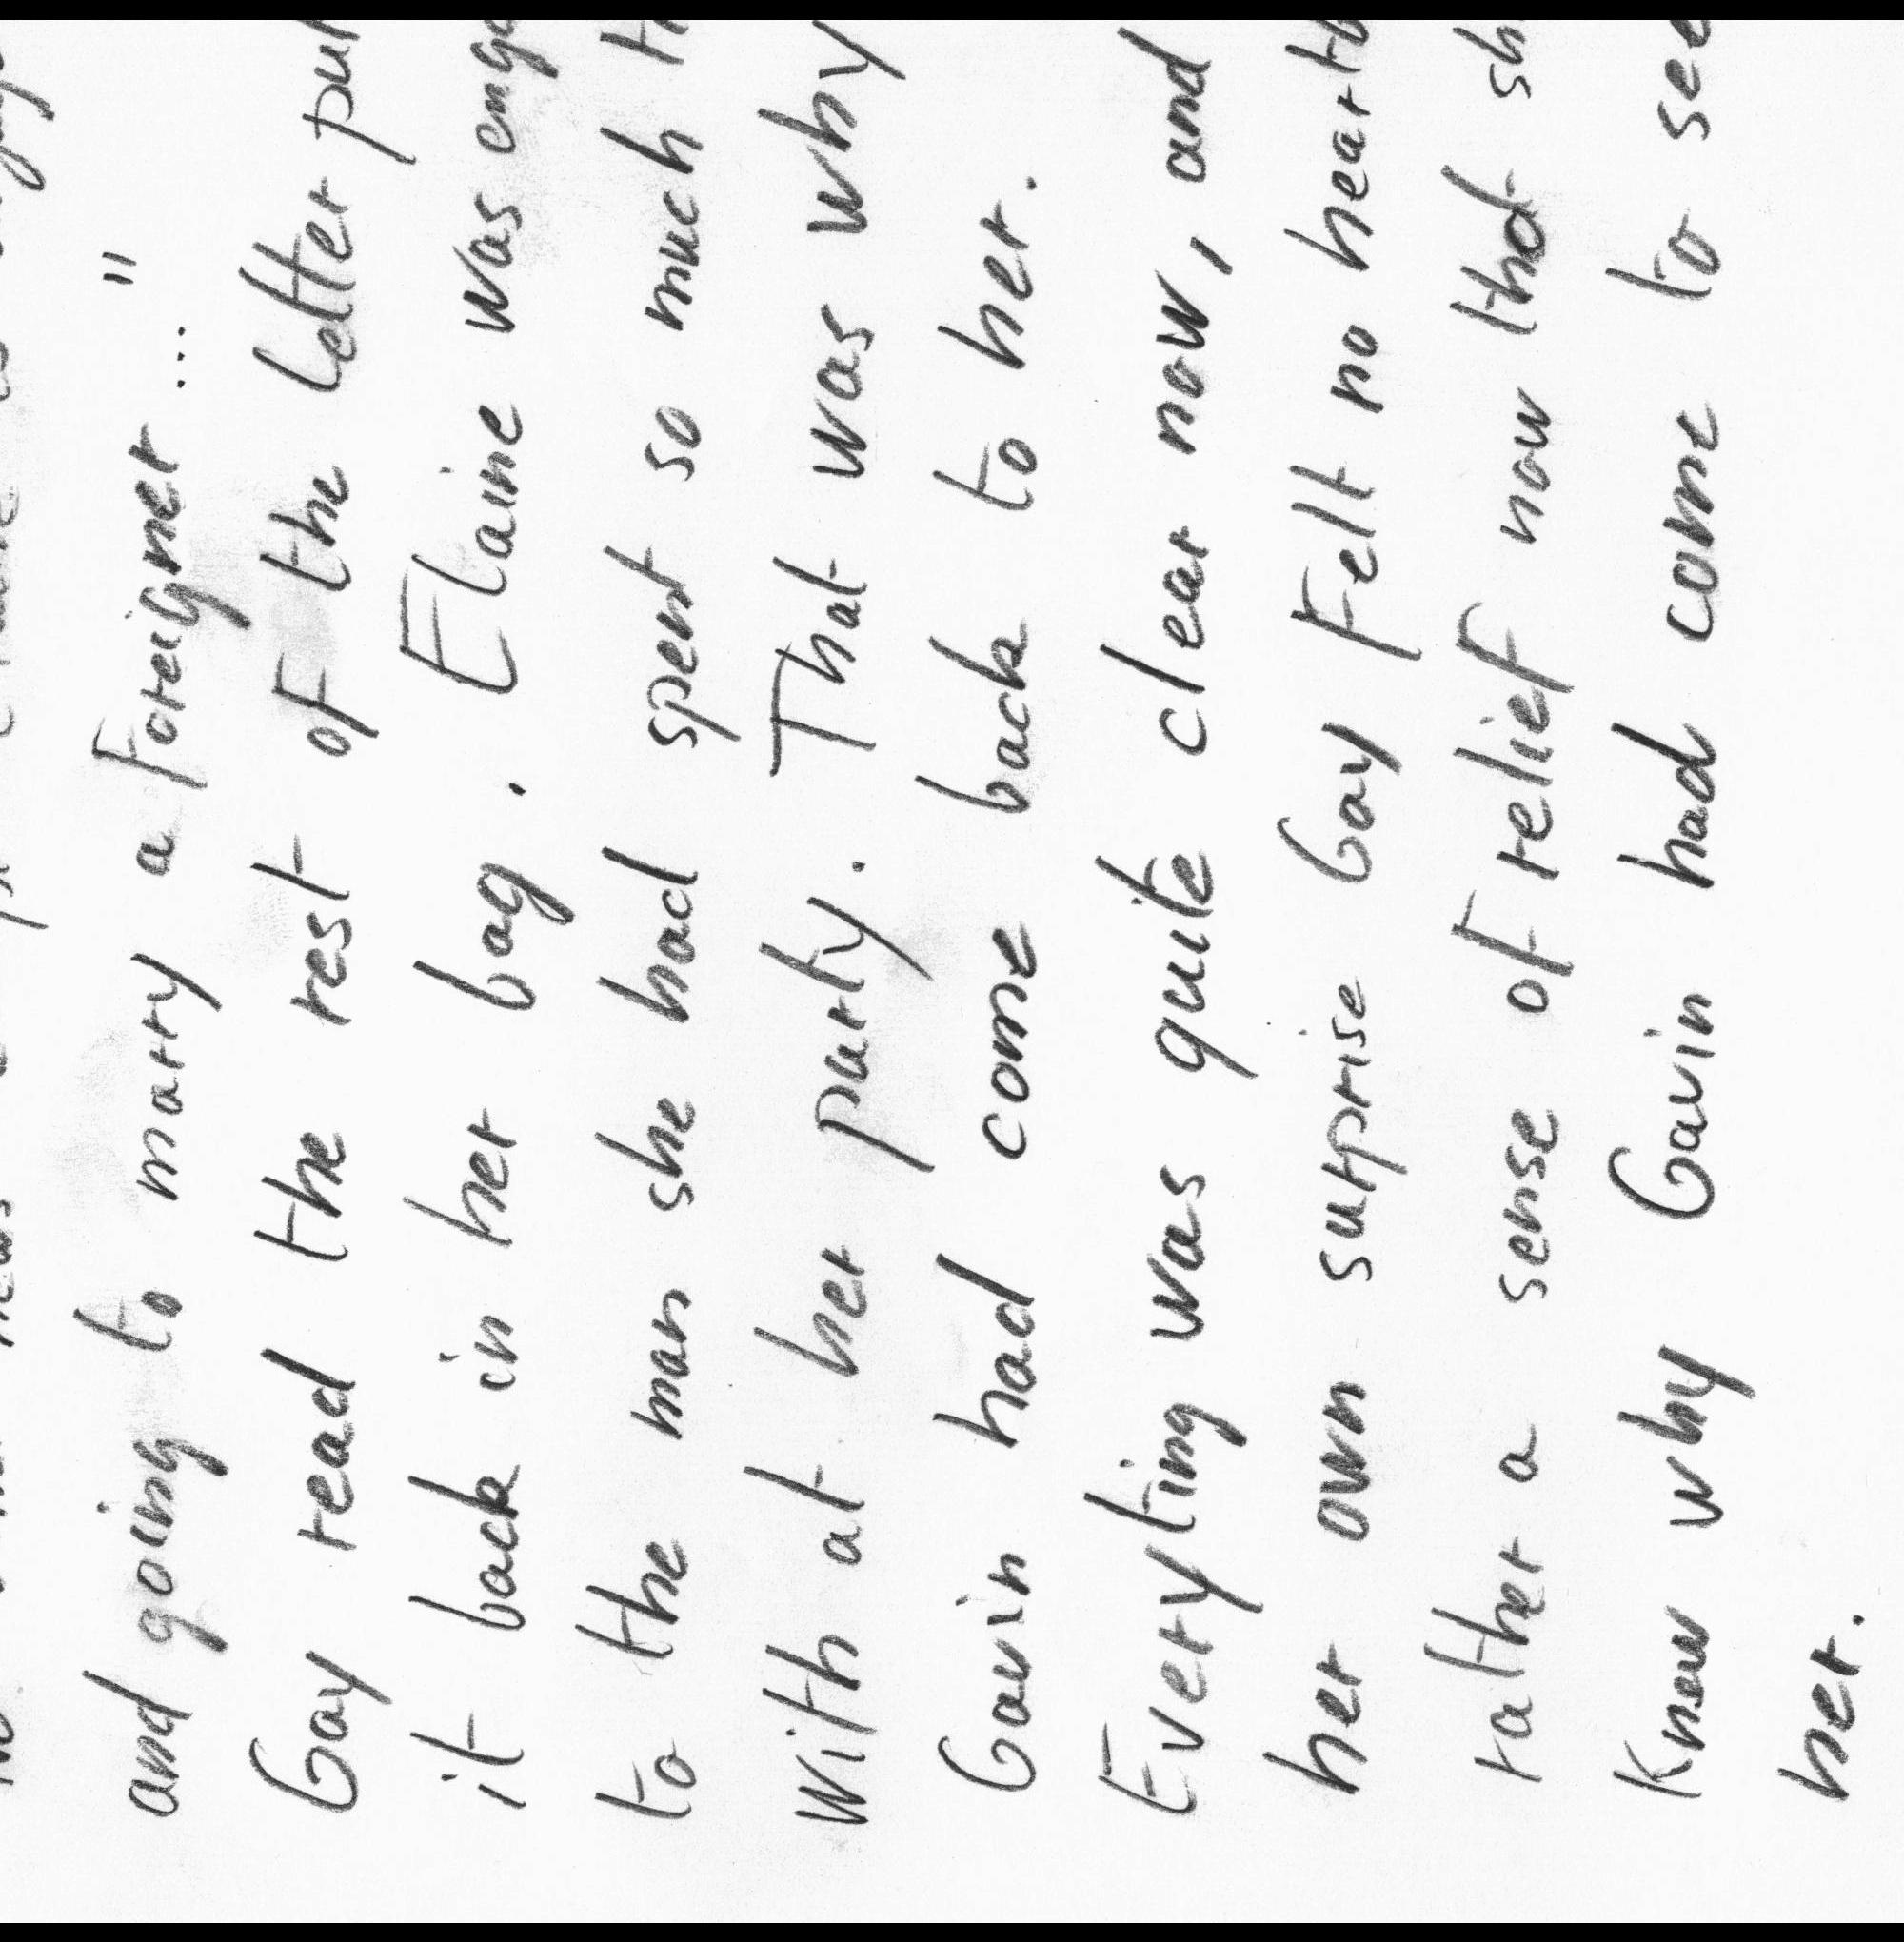 and going to marry a Foreigner ... "
Gay read the rest of the letter put
it back in her bag. Elaine was
to the man she had spent so much
with at her party. That was why
Gavin had come back to her.
Everyting was quite clear now, and
her own surprise Gay Felt no
rather a sense of relief now that
Knew why Gavin had come to see
her.